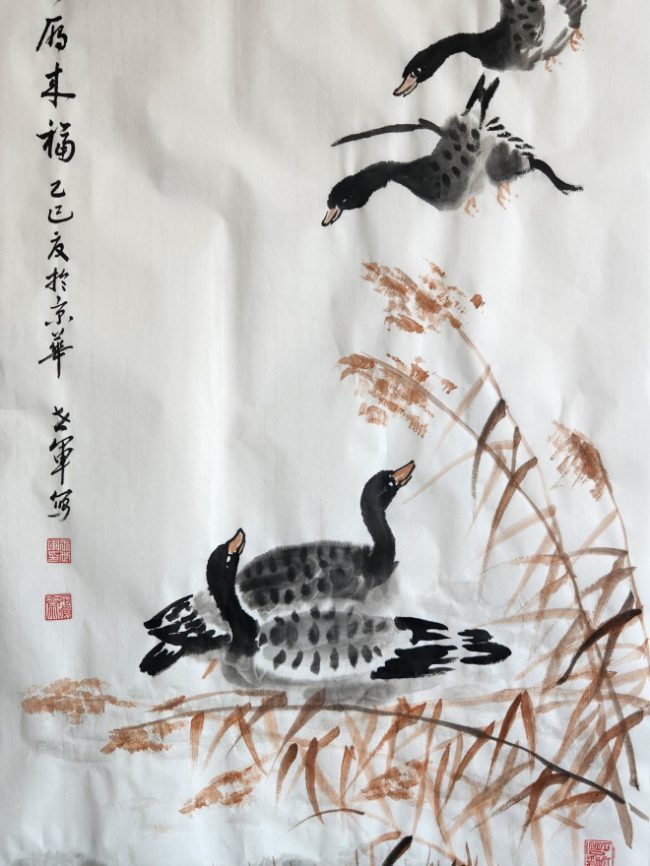 雁来福 乙巳夏於京華 世军写